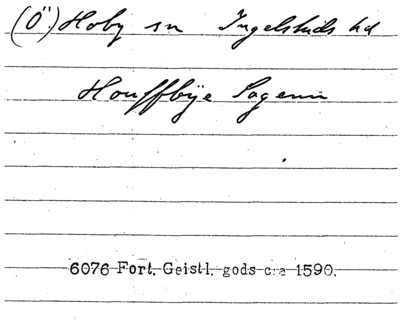 (Ö.) Hoby sn Ingelstads hd
Houffbÿe Sogenn
6076 Fort. Geistl. gods c:a 1590.